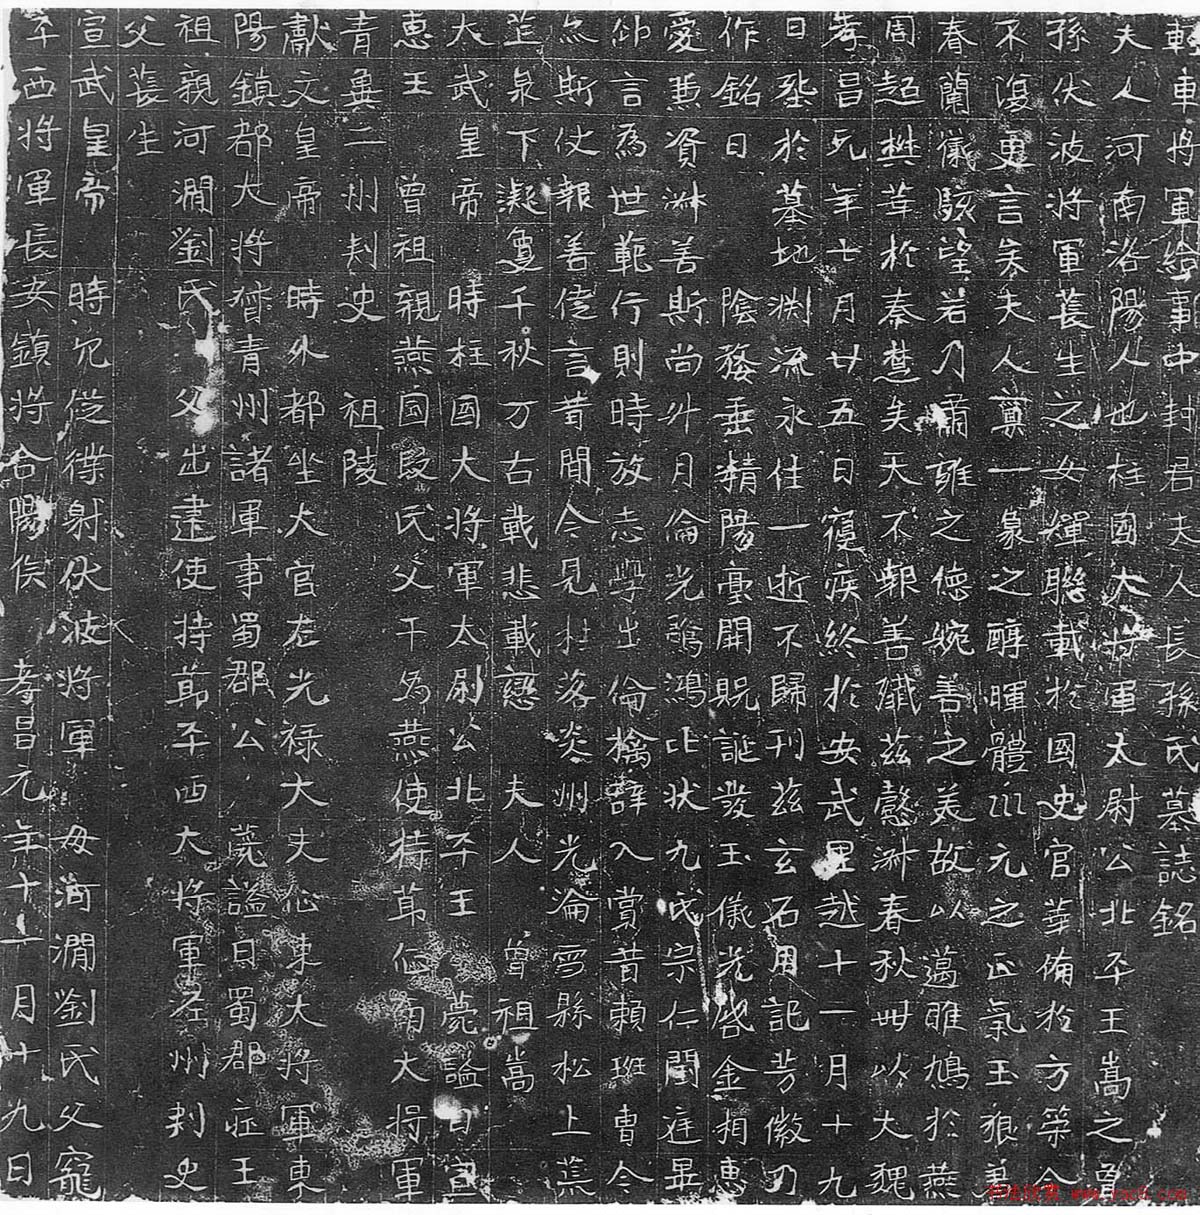 輕車將軍給事中封君夫人長孫氏墓誌銘
夫人河南洛陽人也柱國大將軍太尉公北平王嵩之曾
孫伏波將軍萇生之女輝聯載於國史官華備於方策今
不復更言矣夫人稟一象之醇暉體三元之正氣玉狼
春蘭儀駭望若乃肅雍之德婉善之美故以邁雎鳩於燕
周超樊莘於秦楚矣天不報善殲茲懿淋春秋卅以大魏
孝昌元年七月廿五日寢疾終於安武里越十二月十九
日葬於墓地渊流永往一逝不歸刊茲玄石用記芳徽乃
作銘曰 陰婺垂精陽臺開貺誕發玉儀光啓金相惠
愛蕙資淋善斯尚外月倫光驚鴻比状九氏宗仁閨庭畢
仰言為世範行則時放志學出倫摛辭入賞昔賴班曹今
亦斯仗報善徒言昔聞今見桂落炎州光淪雪縣松上荒
芒泉下凝敻千秋万古載悲載戀 夫人 曾祖嵩
太武皇帝 時柱國大將軍太尉公北平王 薨謚曰宣
惠王 曾祖親燕国段氏父干為燕使持節征南大將軍
青冀二州刺史 祖陵
獻文皇帝 時外都坐大官左光禄大夫征東大將軍東
陽鎮都大將督青州諸軍事蜀郡公 薨謚曰蜀郡莊王
祖親河澗劉氏父出建使持節平西大將軍涇州刺史
父萇生
宣武皇帝 時冗從僕射伏波將軍 母河澗劉氏父寵
平西將軍長安鎮將合陽侯 孝昌元年十一月十九日
www.yac8.com